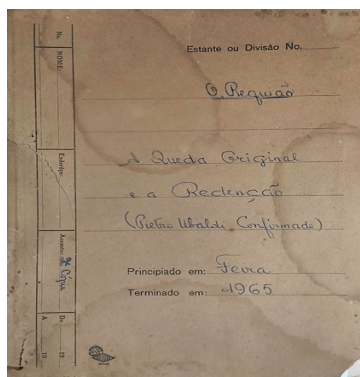 Estante ou Divisão No.
O. Requião
A Queda Original
e a Redenção
(Pietro Ubaldi Confirmado)
Principiado em: Feira
Terminado em: 1965
No.
NOME:
Endereço:
Assunto: 2ª Cópia
De 19
A 19